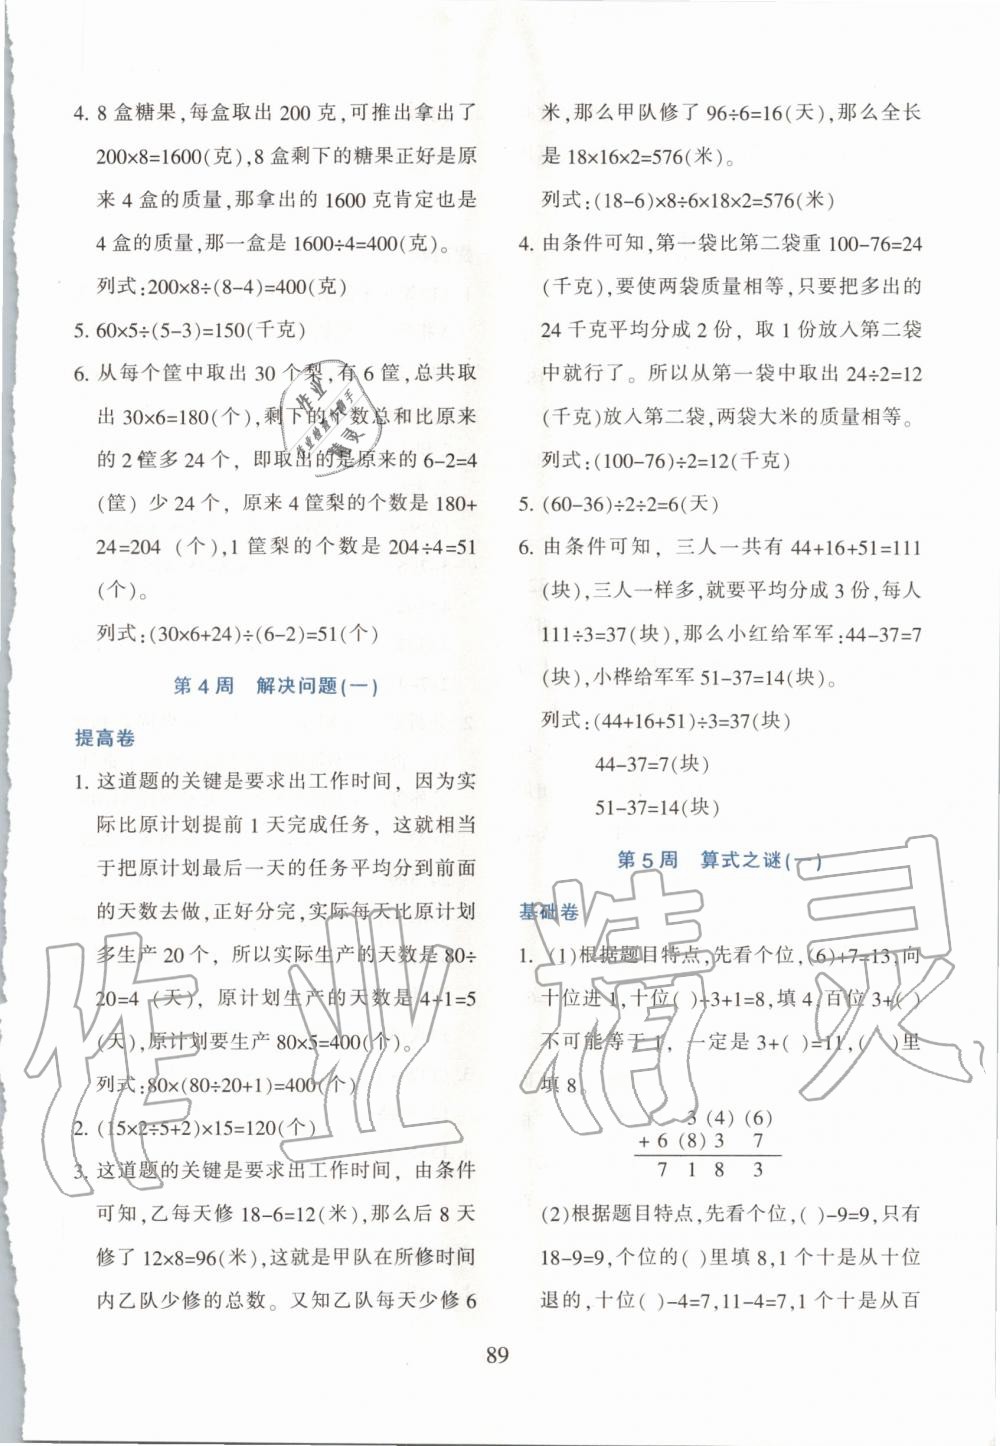 4. 8 盒糖果,每盒取出 200 克,可推出拿出了
200×8=1600(克),8 盒剩下的糖果正好是原
来 4 盒的质量,那拿出的 1600 克肯定也是
4 盒的质量,那一盒是 1600÷4=400(克)。
列式:200×8÷(8-4)=400(克)
5. 60×5÷(5-3)=150(千克)
6. 从每个筐中取出 30 个梨,有 6 筐,总共取
出 30×6=180(个),剩下的个数总和比原来
的 2 筐多 24 个，即取出的是原来的 6-2=4
(筐) 少 24 个，原来 4 筐梨的个数是 180+
24=204 (个),1 筐梨的个数是 204÷4=51
(个)。
列式:(30×6+24)÷(6-2)=51(个)
第 4 周 解决问题(一)
提高卷
1. 这道题的关键是要求出工作时间，因为实
际比原计划提前 1 天完成任务，这就相当
于把原计划最后一天的任务平均分到前面
的天数去做,正好分完,实际每天比原计划
多生产 20 个，所以实际生产的天数是 80÷
20=4 (天)，原计划生产的天数是 4+1=5
(天),原计划要生产 80×5=400(个)。
列式:80×(80÷20+1)=400(个)
2. (15×2÷5+2)×15=120(个)
3. 这道题的关键是要求出工作时间，由条件
可知,乙每天修 18-6=12(米),那么后 8 天
修了 12×8=96(米),这就是甲队在所修时间
内乙队少修的总数。又知乙队每天少修 6
米,那么甲队修了 96÷6=16(天),那么全长
是 18×16×2=576(米)。
列式:(18-6)×8÷6×18×2=576(米)
4. 由条件可知,第一袋比第二袋重 100-76=24
(千克),要使两袋质量相等,只要把多出的
24 千克平均分成 2 份，取 1 份放入第二袋
中就行了。所以从第一袋中取出 24÷2=12
(千克)放入第二袋,两袋大米的质量相等。
列式:(100-76)÷2=12(千克)
5. (60-36)÷2÷2=6(天)
6. 由条件可知，三人一共有 44+16+51=111
(块),三人一样多,就要平均分成 3 份,每人
111÷3=37(块),那么小红给军军:44-37=7
(块),小桦给军军 51-37=14(块)。
列式:(44+16+51)÷3=37(块)
44-37=7(块)
51-37=14(块)
第 5 周 算式之谜(一)
基础卷
1. (1)根据题目特点,先看个位,(6)+7=13,向
十位进 1,十位( )+3+1=8,填 4,百位 3+( )
不可能等于 1，一定是 3+( )=11,( )里
填 8。
3 (4) (6)
+ 6 (8) 3 7
7 1 8 3
(2)根据题目特点,先看个位,( )-9=9,只有
18-9=9,个位的( )里填 8,1 个十是从十位
退的,十位( )-4=7,11-4=7,1 个十是从百
89
作业精灵
作业
作业检查小帮手
精灵